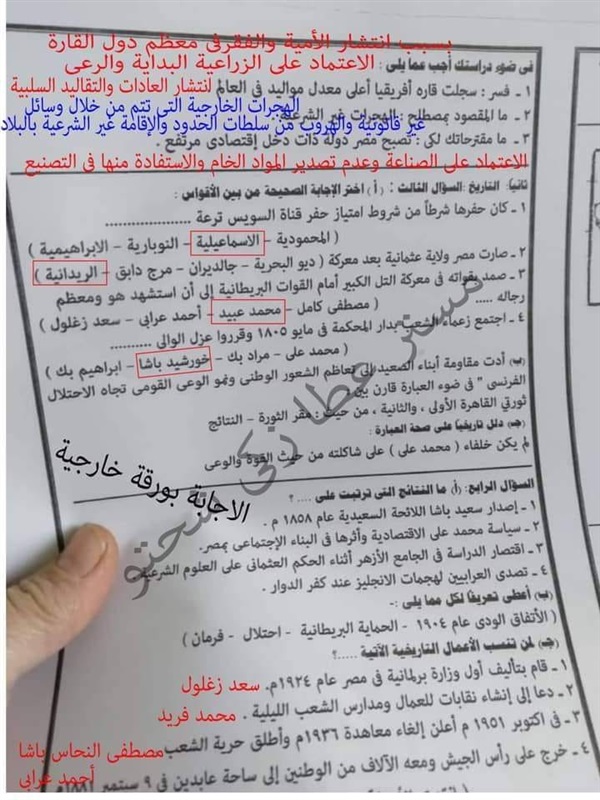 بسبب انتشار الأمية والفقر فى معظم دول القارة
فى ضوء دراستك أجب عما يلى :
الاعتماد على الزراعية البداية والرعى
١ - فسر : سجلت قاره أفريقيا أعلى معدل مواليد فى العالم
انتشار العادات والتقاليد السلبية
٢ - ما المقصود بمصطلح : الهجرات غير الشرعية
الهجرات الخارجية التى تتم من خلال وسائل
غير قانونية والهروب من سلطات الحدود والإقامة غير الشرعية بالبلاد
٣ - ما مقترحاتك لكى : تصبح مصر دولة ذات دخل إقتصادى مرتفع .
الاعتماد على الصناعة وعدم تصدير المواد الخام والاستفادة منها فى التصنيع
ثانياً: التاريخ : السؤال الثالث : ( أ ) اختر الإجابة الصحيحة من بين الأقواس :
١ - كان حفرها شرطاً من شروط امتياز حفر قناة السويس ترعة ..................
( المحمودية - الاسماعيلية - النوبارية - الابراهيمية )
٢ - صارت مصر ولاية عثمانية بعد معركة ( ديو البحرية - جالديران - مرج دابق - الريدانية )
٣ - صمد بقواته فى معركة التل الكبير أمام القوات البريطانية إلى أن استشهد هو ومعظم
رجاله ..... ( مصطفى كامل - محمد عبيد - أحمد عرابى - سعد زغلول )
٤ - اجتمع زعماء الشعب بدار المحكمة فى مايو ١٨٠٥ وقرروا عزل الوالى ..........
( محمد على - مراد بك - خورشيد باشا - ابراهيم بك )
(ب) أدت مقاومة أبناء الصعيد إلى تعاظم الشعور الوطنى ونمو الوعى القومى تجاه الاحتلال
الفرنسى " فى ضوء العبارة قارن بين
ثورتي القاهرة الأولى ، والثانية ، من حيث : مقر الثورة - النتائج
(جـ) دلل تاريخياً على صحة العبارة :
لم يكن خلفاء ( محمد على ) على شاكلته من حيث القوة والوعى
الاجابة بورقة خارجية
السؤال الرابع : (أ) ما النتائج التى ترتبت على ....؟
١ - إصدار سعيد باشا اللائحة السعيدية عام ١٨٥٨ م .
٢ - سياسة محمد على الاقتصادية وأثرها فى البناء الإجتماعى بمصر.
٣ - اقتصار الدراسة فى الجامع الأزهر أثناء الحكم العثمانى على العلوم الشرعية .
٤ - تصدى العرابيين لهجمات الانجليز عند كفر الدوار .
(ب) أعطى تعريفاً لكل مما يلى :
( الأتفاق الودى عام ١٩٠٤ - الحماية البريطانية - احتلال - فرمان )
(جـ) لمن تنسب الأعمال التاريخية الآتية ....؟
١ - قام بتأليف أول وزارة برلمانية فى مصر عام ١٩٢٤م. سعد زغلول
٢ - دعا إلى إنشاء نقابات للعمال ومدارس الشعب الليلية . محمد فريد
٣ - فى اكتوبر ١٩٥١ م أعلن إلغاء معاهدة ١٩٣٦م وأطلق حرية الشعب
مصطفى النحاس باشا
٤ - خرج على رأس الجيش ومعه الآلاف من الوطنين إلى ساحة عابدين فى ٩ سبتمبر ١٨٨١م
أحمد عرابى
مستر عطا زكى